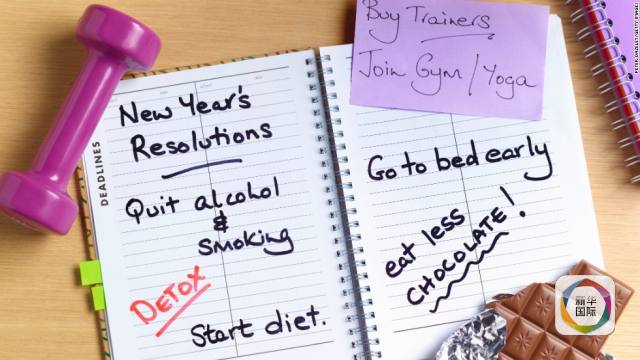 New Year's
Resolutions
DEADLINES
Quit alcohol
&
Smoking
DETOX
Start diet.
Buy Trainers
Join Gym/Yoga
Go to bed early
eat less
CHOCOLATE!
新华
国际